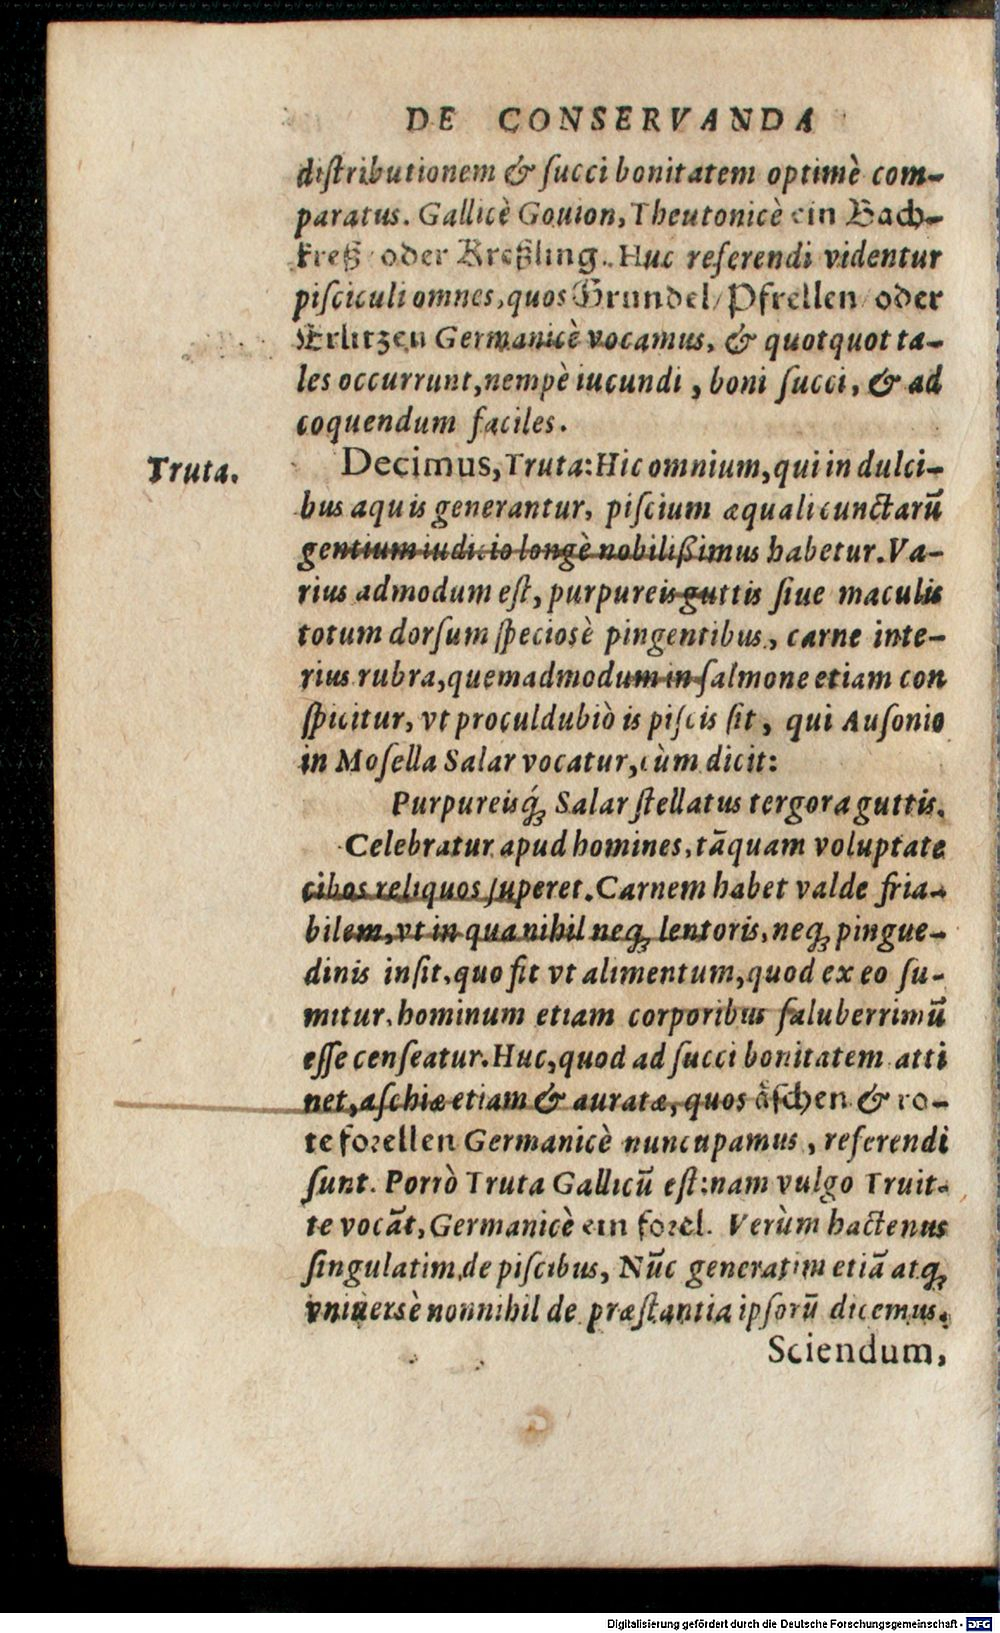 DE CONSERVANDA
distributionem & succi bonitatem optimè com-
paratus. Gallicè Gouion, Theutonicè ein Bach-
kreß oder Kreßling. Huc referendi videntur
pisciculi omnes, quos Grundel/ Pfrellen/ oder
Erlitzen Germanicè vocamus, & quotquot ta-
les occurrunt, nempè iucundi, boni succi, & ad
coquendum faciles.
Truta.
Decimus, Truta: Hic omnium, qui in dulci-
bus aquis generantur, piscium æquali cunctarũ
gentium iudicio longè nobilißimus habetur. Va-
rius admodum est, purpureis guttis siue maculis
totum dorsum speciosè pingentibus, carne inte-
rius rubra, quemadmodum in salmone etiam con
spicitur, vt proculdubiò is piscis sit, qui Ausonio
in Mosella Salar vocatur, cùm dicit:
Purpureisq́ꝫ Salar stellatus tergora guttis.
Celebratur apud homines, tãquam voluptate
cibos reliquos superet. Carnem habet valde fria-
bilem, vt in qua nihil neqꝫ lentoris, neqꝫ pingue-
dinis insit, quo fit vt alimentum, quod ex eo su-
mitur, hominum etiam corporibus saluberrimũ
esse censeatur. Huc, quod ad succi bonitatem atti
net, aschiæ etiam & auratæ, quos äschen & ro-
te forellen Germanicè nuncupamus, referendi
sunt. Porrò Truta Gallicũ est: nam vulgo Truit-
te vocãt, Germanicè ein forel. Verùm hactenus
singulatim de piscibus, Nũc generatim etiã atqꝫ
vniuersè nonnihil de præstantia ipsorũ dicemus.
Sciendum,
Digitalisierung gefördert durch die Deutsche Forschungsgemeinschaft - DFG